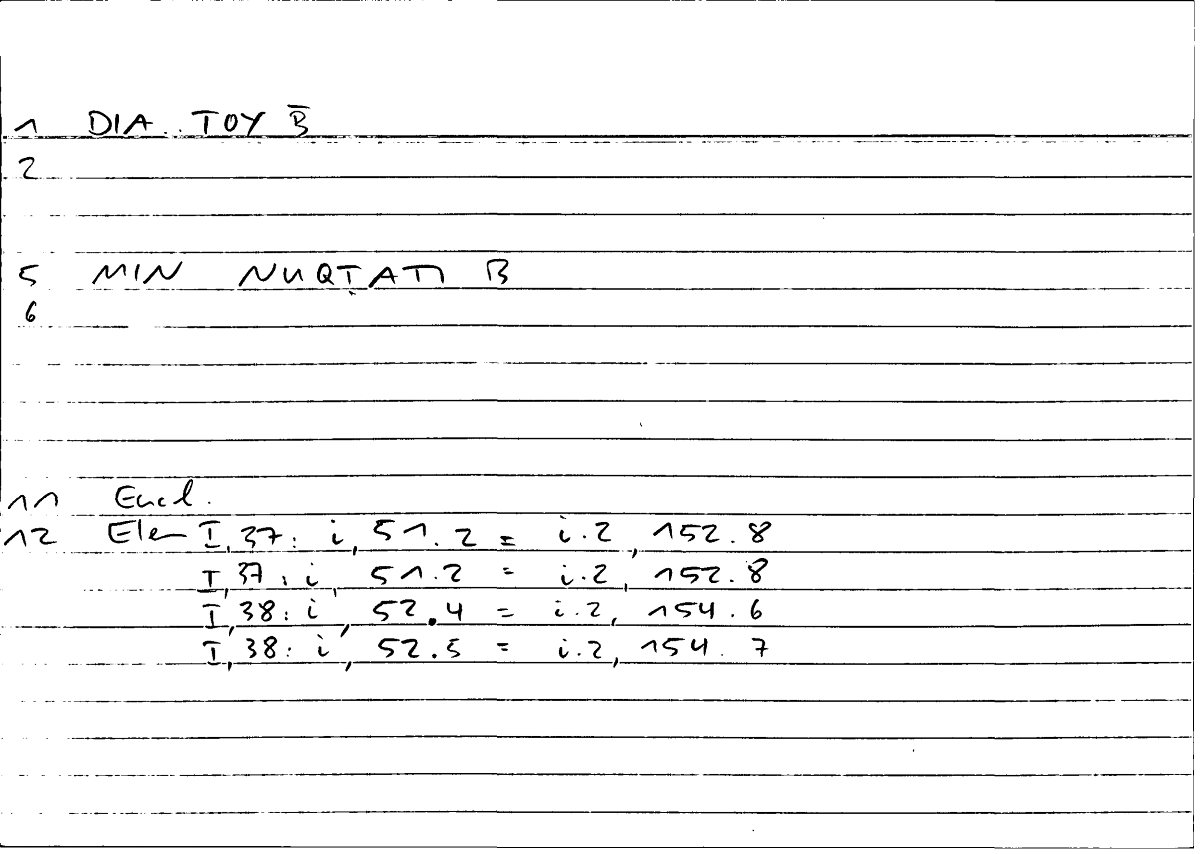 1 DIA TOY B̅
2
5 MIN NUQṬATI B
6
11 Eucl.
12 Elem I, 37: i, 51.2 = i.2, 152.8
I, 37: i, 51.2 = i.2, 152.8
I, 38: i, 52.4 = i.2, 154.6
I, 38: i, 52.5 = i.2, 154.7